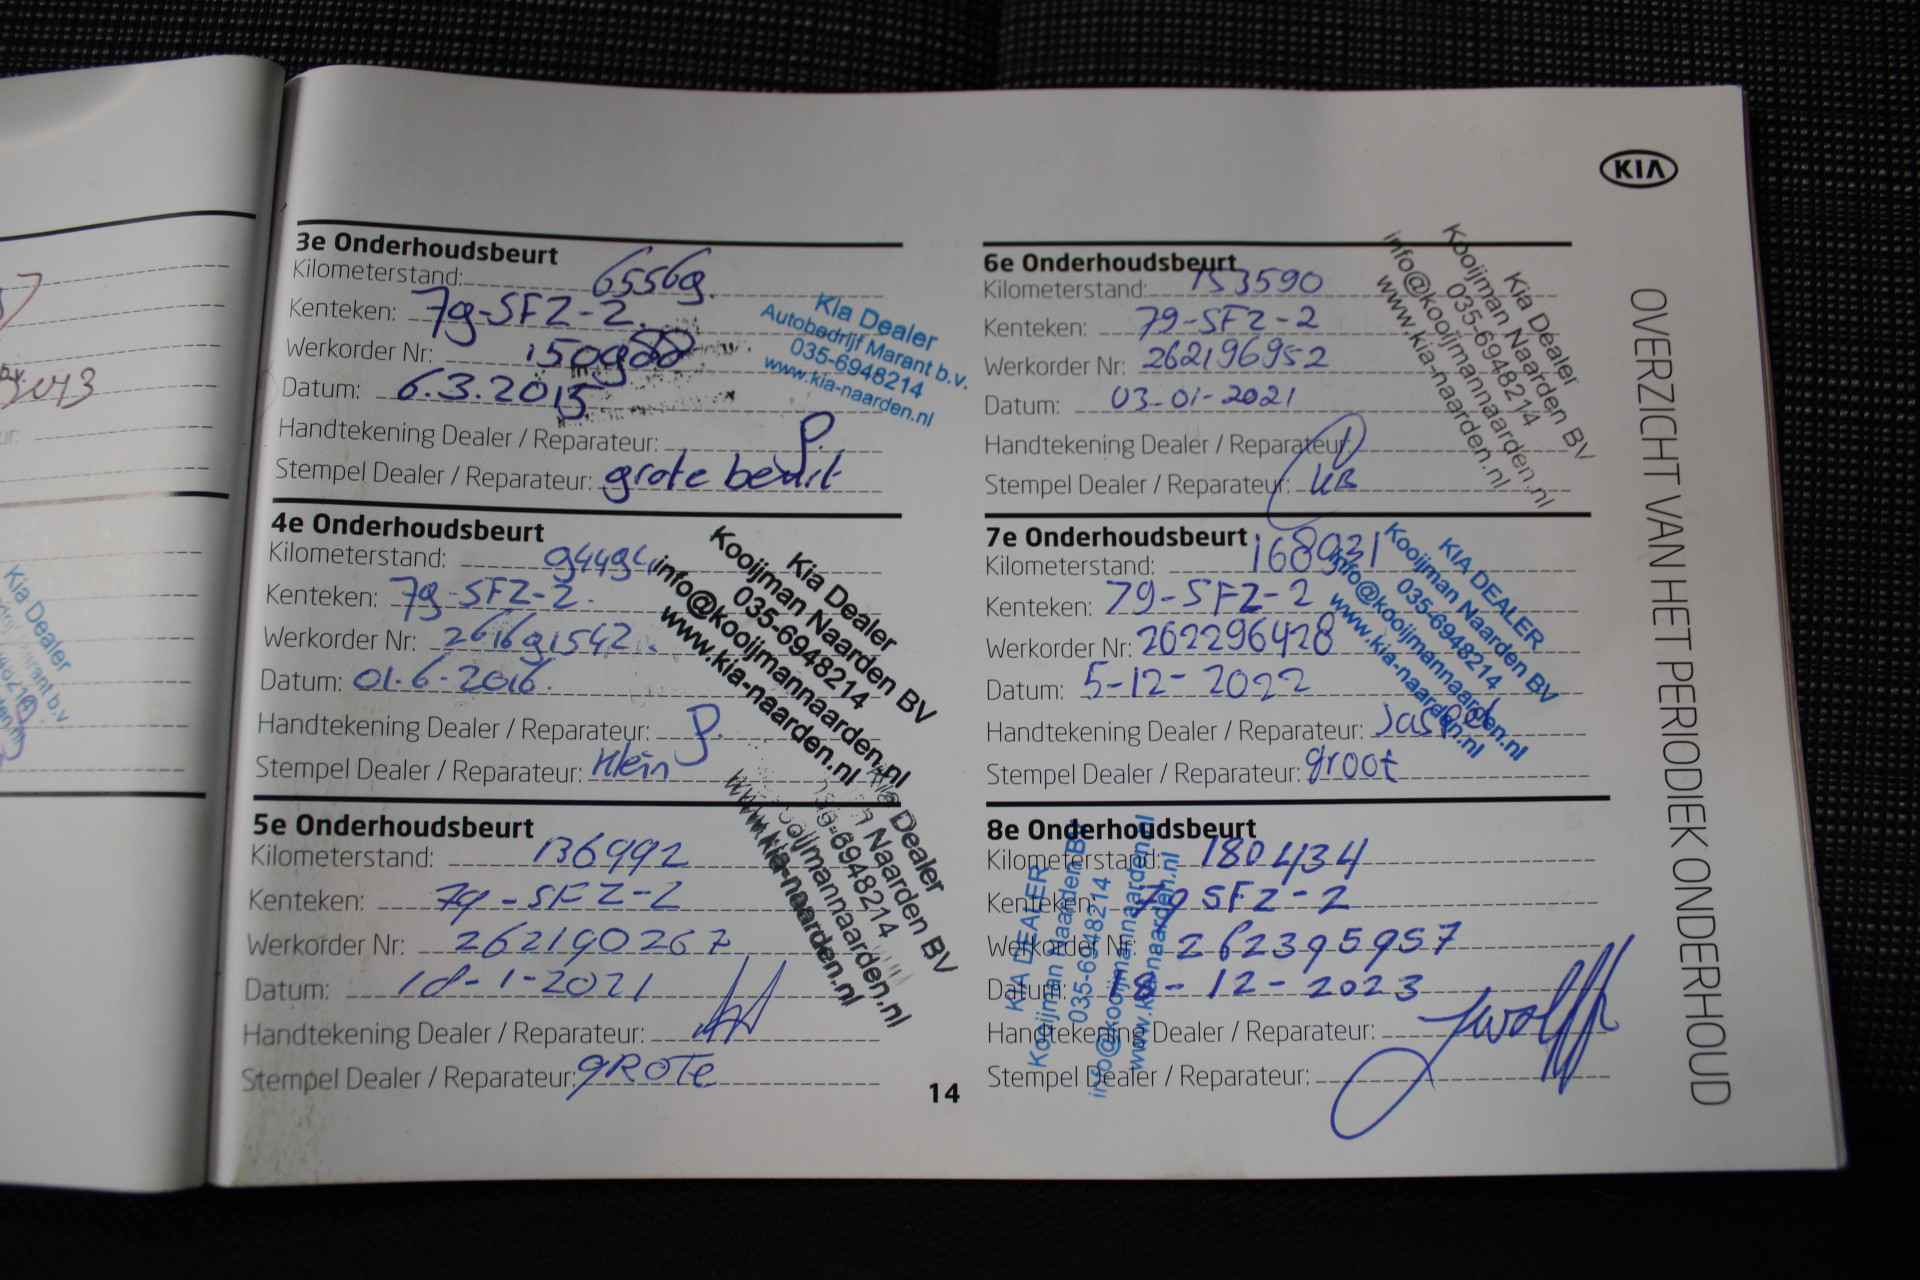 KIA
OVERZICHT VAN HET PERIODIEK ONDERHOUD
2013
Kia Dealer
3e Onderhoudsbeurt
Kilometerstand: 65569.
Kenteken: 79-SFZ-2.
Werkorder Nr: 150988
Datum: 6.3.2015
Handtekening Dealer / Reparateur:
Stempel Dealer / Reparateur: grote beurt
Kia Dealer
Autobedrijf Marant b.v.
035-6948214
www.kia-naarden.nl
4e Onderhoudsbeurt
Kilometerstand:
Kenteken: 79-SFZ-2.
Werkorder Nr: 261691542.
Datum: 01.6-2016.
Handtekening Dealer / Reparateur:
Stempel Dealer / Reparateur: Klein
Kia Dealer
Kooijman Naarden BV
035-6948214
info@kooijmannaarden.nl
www.kia-naarden.nl
5e Onderhoudsbeurt
Kilometerstand: 136992
Kenteken: 79-SFZ-2
Werkorder Nr: 262190267
Datum: 18-1-2021
Handtekening Dealer / Reparateur:
Stempel Dealer / Reparateur: GROTE
Dealer
Naarden BV
6948214
kooijmannaarden.nl
www.kia-naarden.nl
14
6e Onderhoudsbeurt
Kilometerstand: 153590
Kenteken: 79-SFZ-2
Werkorder Nr: 262196952
Datum: 03-01-2021
Handtekening Dealer / Reparateur:
Stempel Dealer / Reparateur: KB
Kia Dealer
Kooijman Naarden BV
035-6948214
info@kooijmannaarden.nl
www.kia-naarden.nl
7e Onderhoudsbeurt
Kilometerstand: 168931
Kenteken: 79-SFZ-2
Werkorder Nr: 262296428
Datum: 5-12-2022
Handtekening Dealer / Reparateur: Jasper
Stempel Dealer / Reparateur: groot
KIA DEALER
Kooijman Naarden BV
035-6948214
info@kooijmannaarden.nl
www.kia-naarden.nl
8e Onderhoudsbeurt
Kilometerstand: 180434
Kenteken: 79 SFZ-2
Werkorder Nr: 262395957
Datum: 8-12-2023
Handtekening Dealer / Reparateur:
Stempel Dealer / Reparateur:
KIA DEALER
Kooijman Naarden BV
035-6948214
info@kooijmannaarden.nl
www.kia-naarden.nl